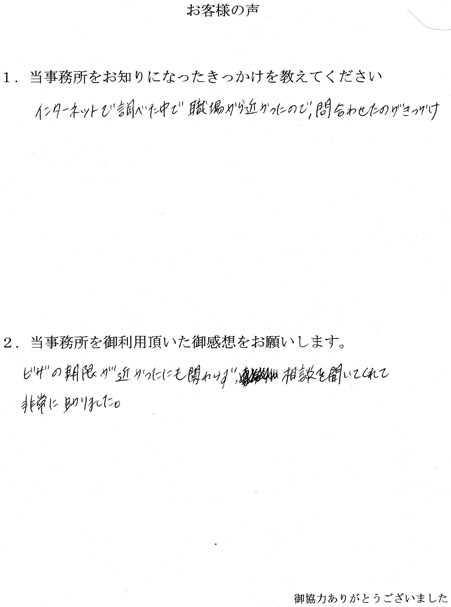 お客様の声
1．当事務所をお知りになったきっかけを教えてください
インターネットで調べた中で職場から近かったので、問合わせたのがきっかけ
2．当事務所を御利用頂いた御感想をお願いします。
ビザの期限が近かったにも関わらず、相談を聞いてくれて
非常に助りました。
御協力ありがとうございました